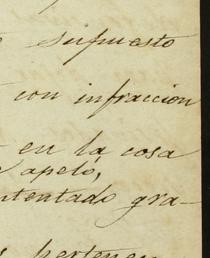 supuesto
con infraccion
en la cosa
apeló,
ntentado gra-
pertenec